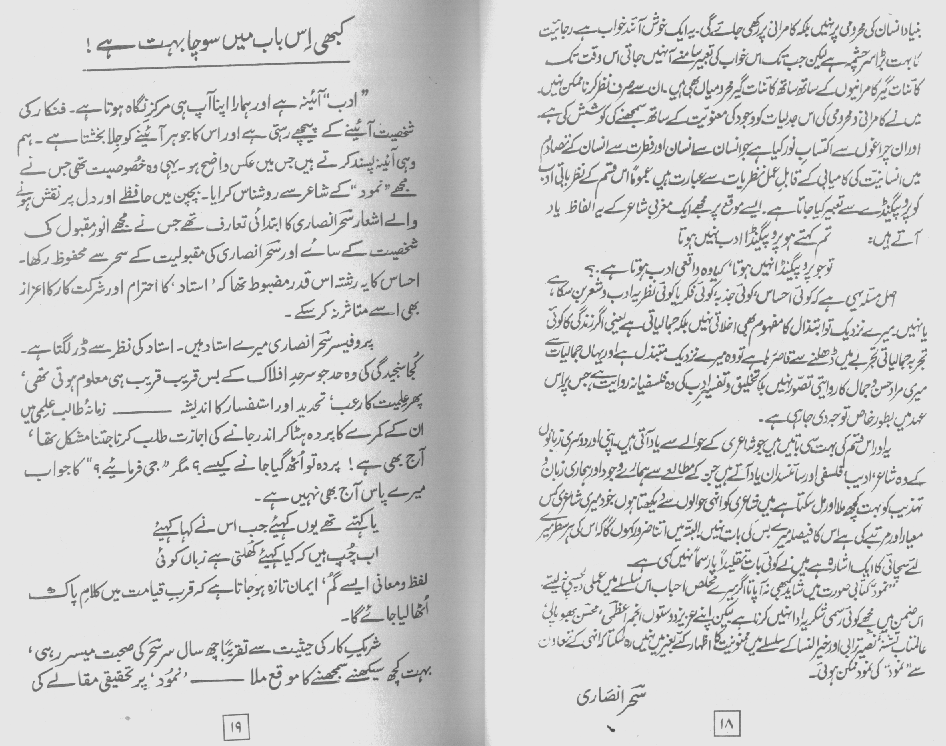 بنیاد انسان کی محرومی پر نہیں بلکہ کامرانی پر رکھی جائے گی۔ یہ ایک خوش آئند خواب ہے رجائیت
کا بہت بڑا سرچشمہ ہے لیکن جب تک اس خواب کی تعبیر سامنے آ نہیں جاتی اس وقت تک
کائنات گیر کامرانیوں کے ساتھ ساتھ کائنات گیر محرومیاں بھی ہیں، ان سے صرف نظر کرنا ممکن نہیں۔
میں نے کامرانی و محرومی کی اس جدلیات کو وجود کی معنویت کے ساتھ سمجھنے کی کوشش کی ہے
اور ان چراغوں سے اکتسابِ نور کیا ہے جو انسان سے انسان اور فطرت سے انسان کے تصادم
میں انسانیت کی کامیابی کے قابلِ عمل نظریات سے عبارت ہیں عموماً اس قسم کے نظریاتی ادب
کو پروپیگنڈے سے تعبیر کیا جاتا ہے۔ ایسے موقع پر مجھے ایک مغربی شاعر کے یہ الفاظ یاد
آتے ہیں:
تم کہتے ہو پروپیگنڈا ادب نہیں ہوتا
تو جو پروپیگنڈا نہیں ہوتا، کیا وہ واقعی ادب ہوتا ہے۔؟
اصل مسئلہ یہی ہے کہ کوئی احساس، کوئی جذبہ، کوئی فکر یا کوئی نظریہ ادب و شعر بن سکا ہے
یا نہیں۔ میرے نزدیک تو ابتذال کا مفہوم بھی اخلاقی نہیں بلکہ جمالیاتی ہے یعنی اگر زندگی کا کوئی
تجربہ جمالیاتی تجربے میں ڈھلنے سے قاصر رہا ہے تو وہ میرے نزدیک مبتذل ہے اور یہاں جمالیات سے
میری مراد حسن و جمال کا روایتی تصور نہیں بلکہ تخلیق و تفسیرِ ادب کی وہ فلسفیانہ روایت ہے جس پر اس
عہد میں بطورِ خاص توجہ دی جا رہی ہے۔
یہ اور اس قسم کی بہت سی باتیں ہیں جو شاعری کے حوالے سے یاد آتی ہیں۔ اپنی اور دوسری زبانوں
کے وہ شاعر، ادیب، فلسفی اور سائنسدان یاد آتے ہیں جن کے مطالعے سے ہمارے وجود اور ہماری زبان و
تہذیب کو بہت کچھ ملا اور مل سکتا ہے میں شاعری کو انہی حوالوں سے دیکھتا ہوں۔ خود میری شاعری کس
معیار اور مرتبے کی ہے اس کا فیصلہ میرے بس کی بات نہیں، البتہ میں اتنا ضرور کہوں گا کہ اس کی ہر سطر میرے
لئے سچائی کا ایک اشارہ ہے میں نے کوئی بات تقلیداً یا رسماً نہیں کہی ہے۔
"نمود" کتابی صورت میں شاید کبھی نہ آ پاتا اگر میرے مخلص احباب اس سلسلے میں عملی دلچسپی نہ لیتے۔
اس ضمن میں مجھے کوئی رسمی شکریہ ادا نہیں کرنا ہے لیکن اپنے عزیز دوستوں، انجم اعظمی، محسن بھوپالی،
نصیر ترابی اور خیر النسا کے سلسلے میں ممنونیت کا اظہار کئے بغیر میں نہیں رہ سکتا کہ انہی کے تعاون
سے "نمود" کی نمود ممکن ہوئی۔
سحر انصاری
۱۸
کبھی اِس باب میں سوچا بہت ہے!
"ادب" آئینہ ہے اور ہمارا اپنا آپ ہی مرکزِ نگاہ ہوتا ہے۔ فنکار کی
شخصیت آئینے کے پیچھے رہتی ہے اور اس کا جوہر آئینے کو جِلا بخشتا ہے۔ ہم
وہی آئینہ پسند کرتے ہیں جس میں عکس واضح ہو۔ یہی وہ خصوصیت تھی جس نے
مجھے "نمود" کے شاعر سے روشناس کرایا۔ بچپن میں حافظے اور دل پر نقش ہونے
والے اشعار سحر انصاری کا ابتدائی تعارف تھے جس نے مجھے انورِ مقبول کی
شخصیت کے سائے اور سحر انصاری کی مقبولیت کے سحر سے محفوظ رکھا۔
احساس کا یہ رشتہ اس قدر مضبوط تھا کہ 'استاد' کا احترام اور شرکت کار کا اعزاز
بھی اسے متاثر نہ کر سکے۔
پروفیسر سحر انصاری میرے استاد ہیں۔ استاد کی نظر سے ڈر لگتا ہے۔
کجا سنجیدگی کی وہ حد جو سرحدِ افلاک کے بس قریب قریب ہی معلوم ہوتی تھی،
پھر علمیت کا رعب، تحدید اور استفسار کا اندیشہ —— زمانۂ طالب علمی میں
ان کے کمرے کا پردہ ہٹا کر اندر جانے کی اجازت طلب کرنا جتنا مشکل تھا،
آج بھی ہے! پردہ تو اُٹھ گیا جانے کیسے؟ مگر "جی فرمائیے؟" کا جواب
میرے پاس آج بھی نہیں ہے۔
یا کہتے تھے یوں کہیئے جب اس نے کہا کہیئے
اب چُپ ہیں کہ کیا کہیئے کھلتی ہے زباں کوئی
لفظ و معانی ایسے گم، ایمان تازہ ہو جاتا ہے کہ قربِ قیامت میں کلامِ پاک
اُٹھا لیا جائے گا۔
شریکِ کار کی حیثیت سے تقریباً چھ سال سرِ سحر کی صحبت میسر رہی،
بہت کچھ سیکھنے سمجھنے کا موقع ملا —— 'نمُود' پر تحقیقی مقالے کی
۱۹